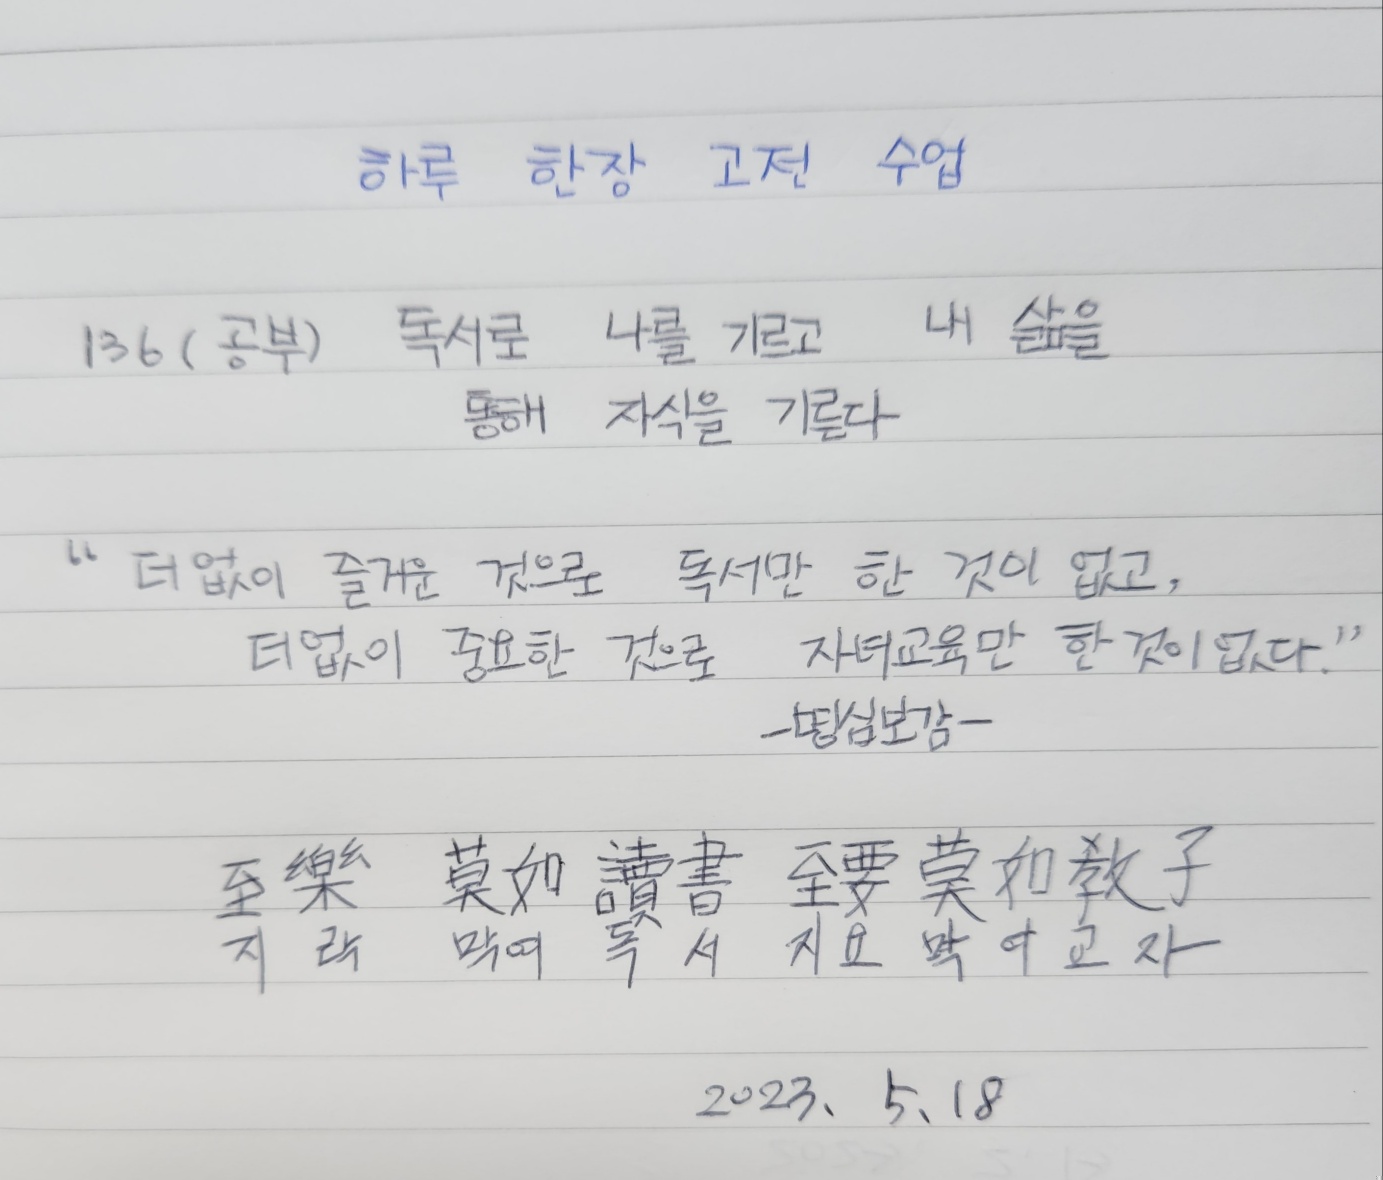 하루 한장 고전 수업
136(공부) 독서로 나를 기르고 내 삶을
통해 자식을 기른다
“더없이 즐거운 것으로 독서만 한 것이 없고,
더없이 중요한 것으로 자녀교육만 한 것이 없다.”
-명심보감-
至樂 莫如 讀書 至要 莫如教子
지락 막여 독서 지요 막여교자
2023. 5. 18